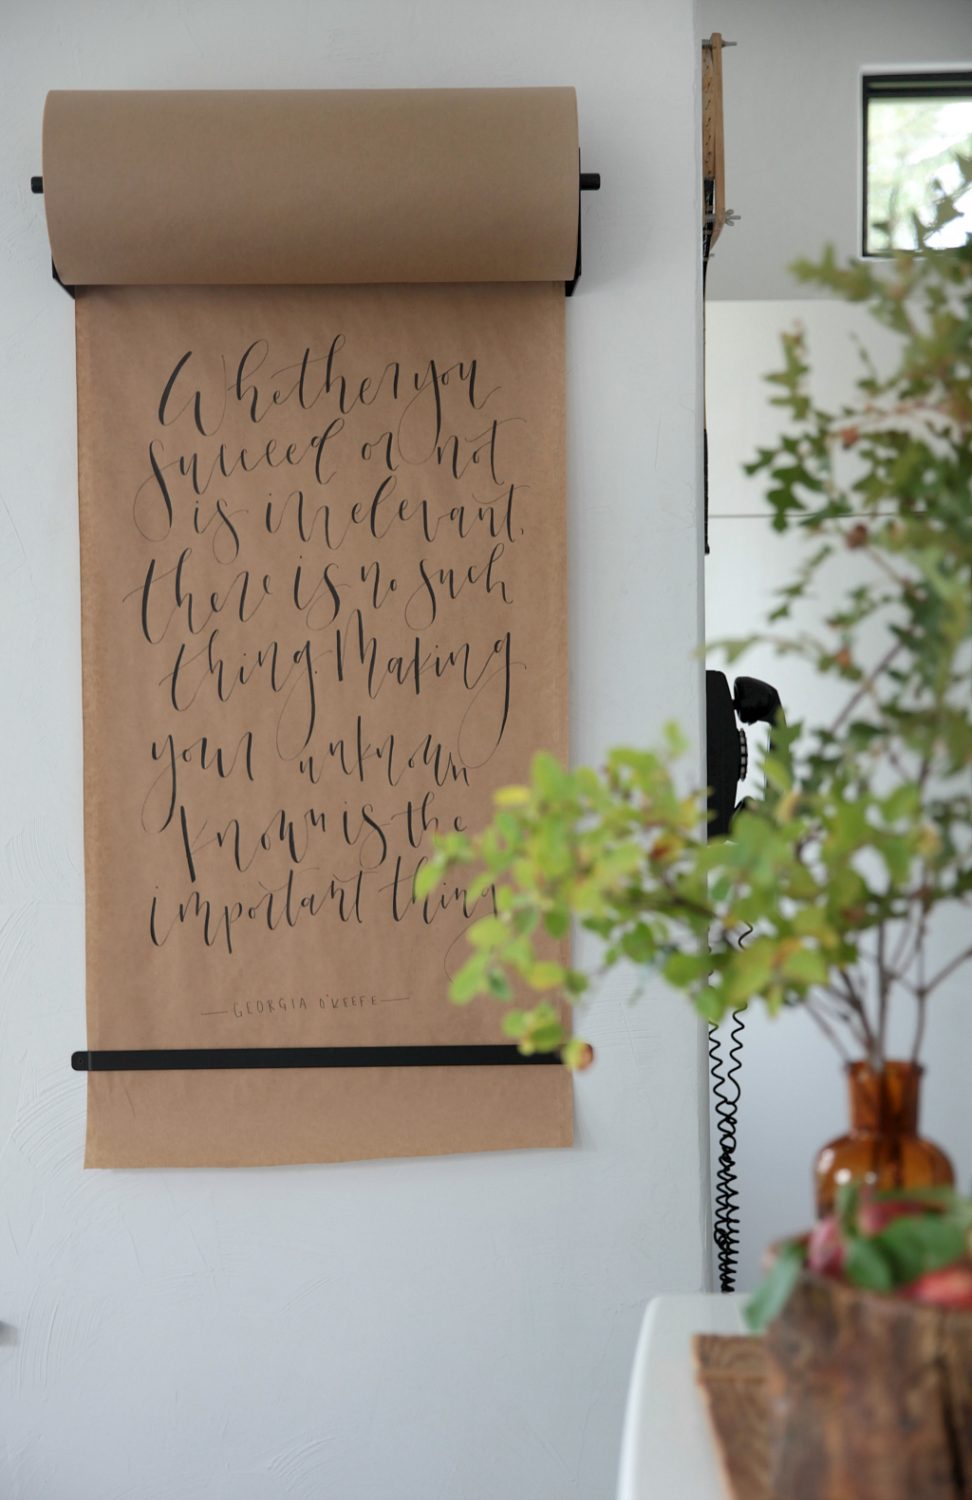 Whether you
succeed or not
is irrelevant,
there is no such
thing. Making
your unknown
known is the
important thing
— GEORGIA O'KEEFE —